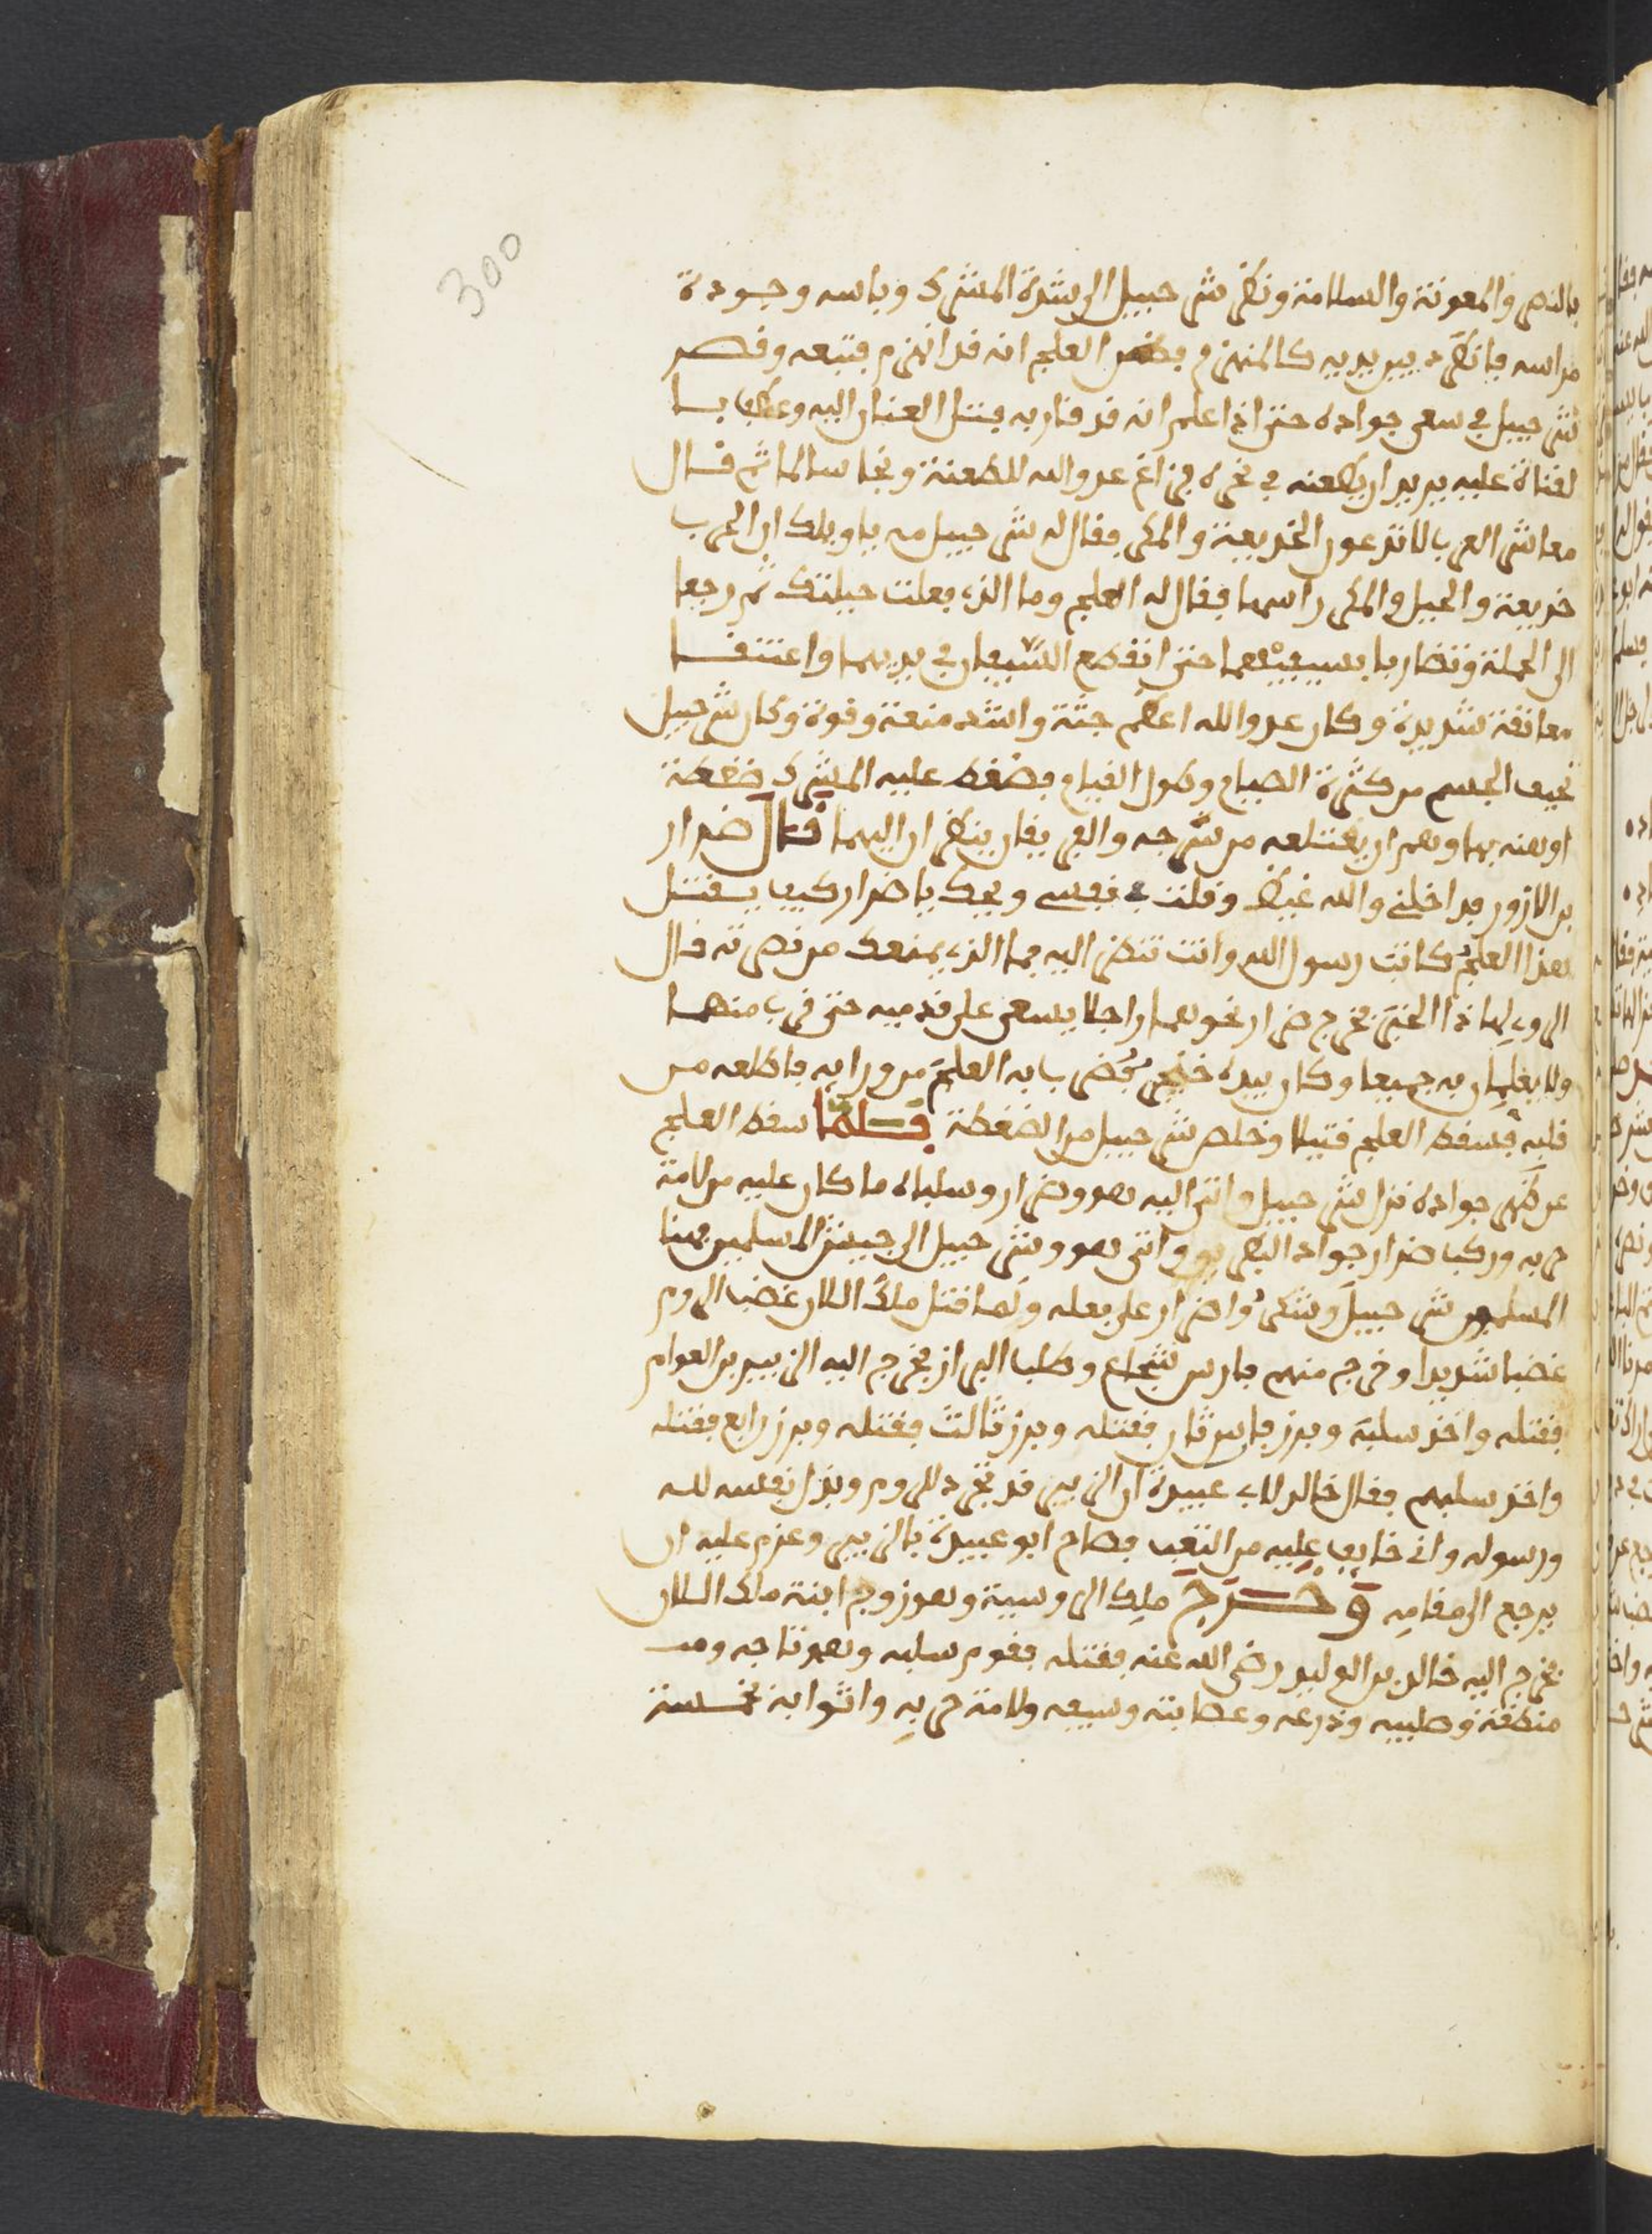 300
بالنصر والمعونة والسلامة ونظر شرحبيل الى شدة المشرك وباسه وجودة
مراسه فانطرد بين يديه كالمنهزم فظن العلج انه قد انهزم فتبعه وقصر
شرحبيل في سعي جواده حتى اذا علم انه قد قاربه فتل العنان اليه وعطف
القناة عليه يريد ان يطعنه في نحره فزاغ عدو الله للطعنة ونجا سالما ثم قال
معاشر العرب لا تدعون الخديعة والمكر فقال له شرحبيل مه يا ويلك ان الحرب
خديعة والحيل والمكر راسها فقال له العلج وما الذي فعلت حيلتك ثم رجعا
الى الحملة وتضاربا بسيفيهما حتى انقطع السيفان في يديهما واعتنقا
معانقة شديدة وكان عدو الله اعظم جثة واشد منعة وقوة وكان شرحبيل
نحيف الجسم من كثرة الصيام وطول القيام فضغط عليه المشرك ضغطة
اوهنه بها وهم ان يقتلعه من سرجه والفريقان ينظران اليهما قال ضرار
بن الازور فداخلني والله غيظ وقلت في نفسي ويحك يا ضرار كيف يقتل
هذا العلج كاتب رسول الله وانت تنظر اليه فما الذي يمنعك من نصرته قال
الراوي لهاذا الخبر فخرج ضرار نحوهما راجلا يسعى على قدميه حتى قرب منهما
ولا يعلمان به جميعا وكان بيده خنجر فضرب به العلج من ورائه فاطلعه من
قلبه فسقط العلج قتيلا وخلص شرحبيل من الضغطة فلما سقط العلج
عن ظهر جواده نزل شرحبيل واتى اليه هو وضرار وسلباه ما كان عليه من لامة
حربه وركب ضرار جواد البطريق واتى هو وشرحبيل الى جيش المسلمين فهنا
المسلمون شرحبيل وشكروا ضرار على فعله ولما قتل ملك اللان غضب الروم
غضبا شديدا وخرج منهم فارس شجاع وطلب البراز فخرج اليه الزبير بن العوام
فقتله واخذ سلبه وبرز فارس ثان فقتله وبرز ثالث فقتله وبرز رابع فقتله
واخذ سلبهم فقال خالد لابي عبيدة ان الزبير قد تجرد للروم وبذل نفسه لله
ورسوله واني خايف عليه من التعب فصاح ابو عبيدة بالزبير وعزم عليه ان
يرجع الى مقامه وخرج ملك الروسية وهو زوج ابنة ملك اللان
فخرج اليه خالد بن الوليد رضي الله عنه فقتله فقوم سلبه وهو تاجه
منطقته وصليبه ودرعه وعصابته وسيفه ولامة حربه واثوابه بخمسة